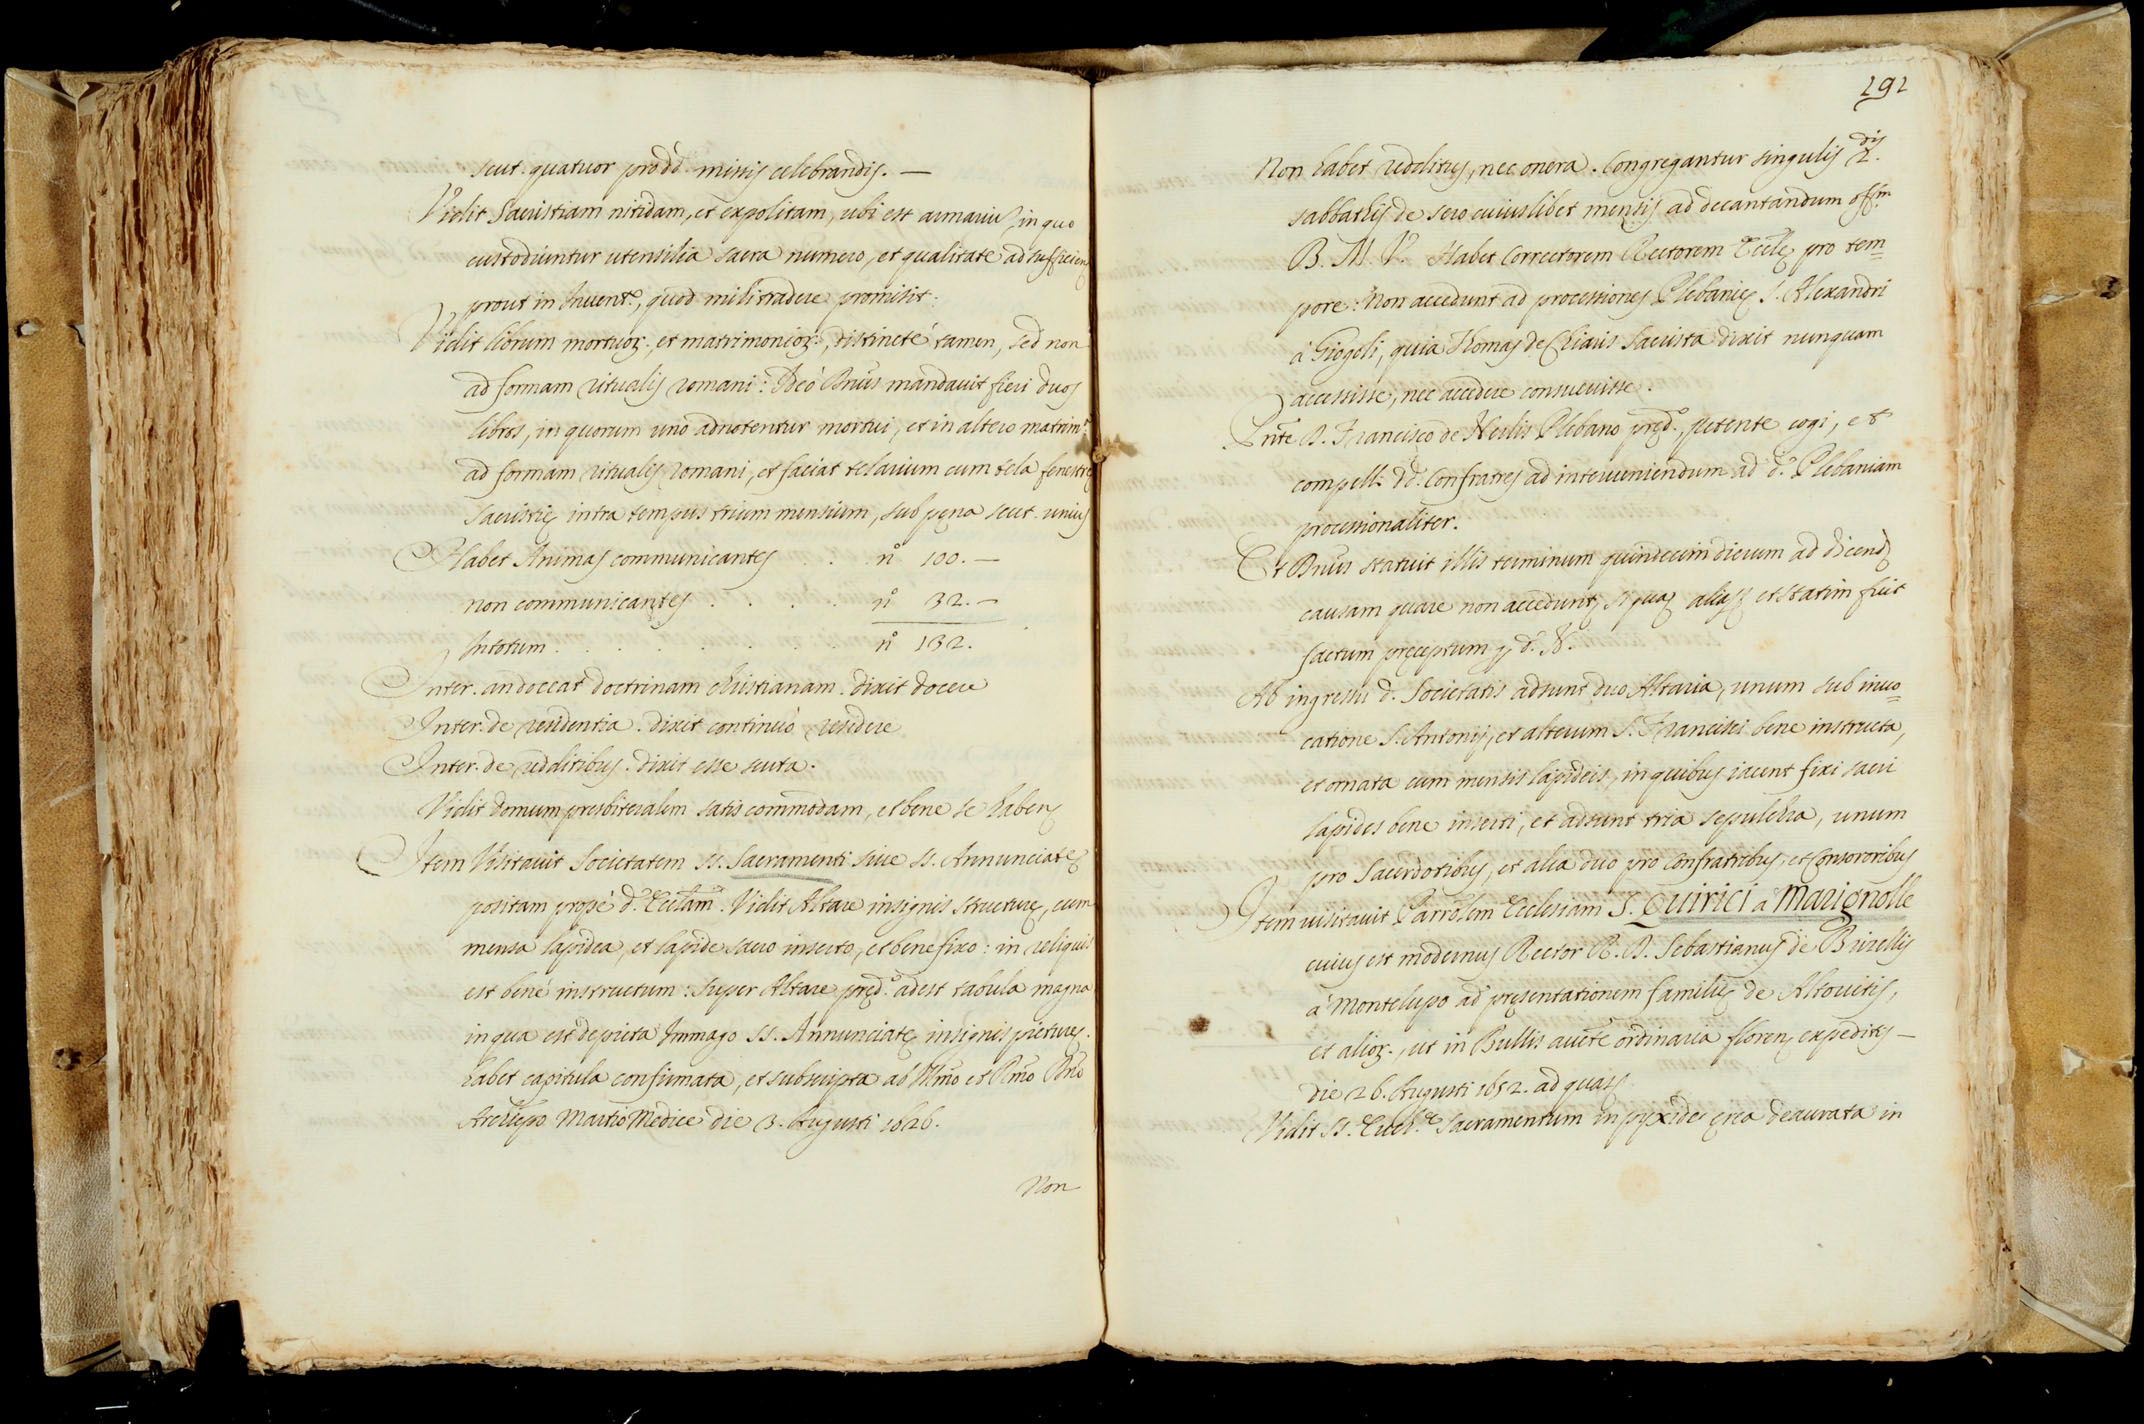 scut. quatuor pro dd. missis celebrandis. —
Vidit Sacristiam nitidam, et expolitam, ubi est armariũ, in quo
custodiuntur utensilia sacra numero, et qualitate ad sufficien.
prout in Invent.º, quod mihi tradere promisit.
Vidit librum mortuor., et matrimonior., distincté tamen, sed non
ad formam ritualis romani: Ideó Dnũs mandavit fieri duos
libros, in quorum uno adnotentur mortui, et in altero matrim.
ad formam ritualis romani, et faciat telarium cum tela fenestrę
Sacristię intra tempus trium mensium, sub pęna scut. unius
Habet Animas communicantes . . nº 100. —
non communicantes . . . . nº 32. —
Intotum . . . . . . . nº 132.
Inter. an doceat doctrinam christianam. dixit docere
Inter. de residentia. dixit continuò residere
Inter. de redditibus. dixit esse scuta.
Vidit domum presbiteralem satis commodam, et bene se haben.
Item Visitavit Societatem SS. Sacramenti sive SS. Annunciatę
positam propè d.ª Eccl̃am. Vidit Altare insignis structurę, cum
mensa lapidea, et lapide sacro inserto, et bene fixo: in reliquis
est benè instructum: super Altare pręd.º adest tabula magna
in qua est depicta Immago SS. Annunciatę insignis picturę.
habet capitula confirmata, et subscripta ab Ill̃mo et R̃mo D̃no
Archiep̃o Martio Medice die 3. Augusti 1626.
Non
191
Non habet redditus, nec onera. Congregantur singulis 2.dis
sabbathis de sero cuiuslibet mensis ad decantandum off.m
B. M. V. Habet Correctorem Rectorem Eccl̃ę pro tem=
pore: Non accedunt ad processiones Plebanię S. Alexandri
à Giogoli, quia Thomas de Chiaris Sacrista dixit nunquam
accessisse, nec accedere consuevisse.
Pñte D. Francisco de Nerlis Plebano pręd.º, petente cogi, et
compelli dd. Confratres ad interveniendum ad d.ª Plebaniam
processionaliter.
Et Dnũs statuit illis terminum quindecim dierum ad dicend.
causam quare non accedunt, si quas alias et statim fuit
factum pręceptum p d. N.
Ab ingressu d. Societatis adsunt duo Altaria, unum sub invo=
catione S. Antonij, et alterum S. Francisci bene instructa,
et ornata cum mensis lapideis, in quibus iacent fixi sacri
lapides bene inserti, et adsunt tria sepulchra, unum
pro Sacerdotibus, et alia duo pro Confratribus, et Consororibus
Item visitavit Parrõlem Ecclesiam S. Quirici a Marignolle
cuius est modernus Rector R. D. Sebastianus de Burellis
à Montelupo ad pręsentationem familię de Altovitis,
et alior., ut in Bullis aucte ordinaria floren. expeditis —
die 26. Augusti 1652. ad quas
Vidit SS. Euch.ę Sacramentum in pyxide ęrea deaurata in